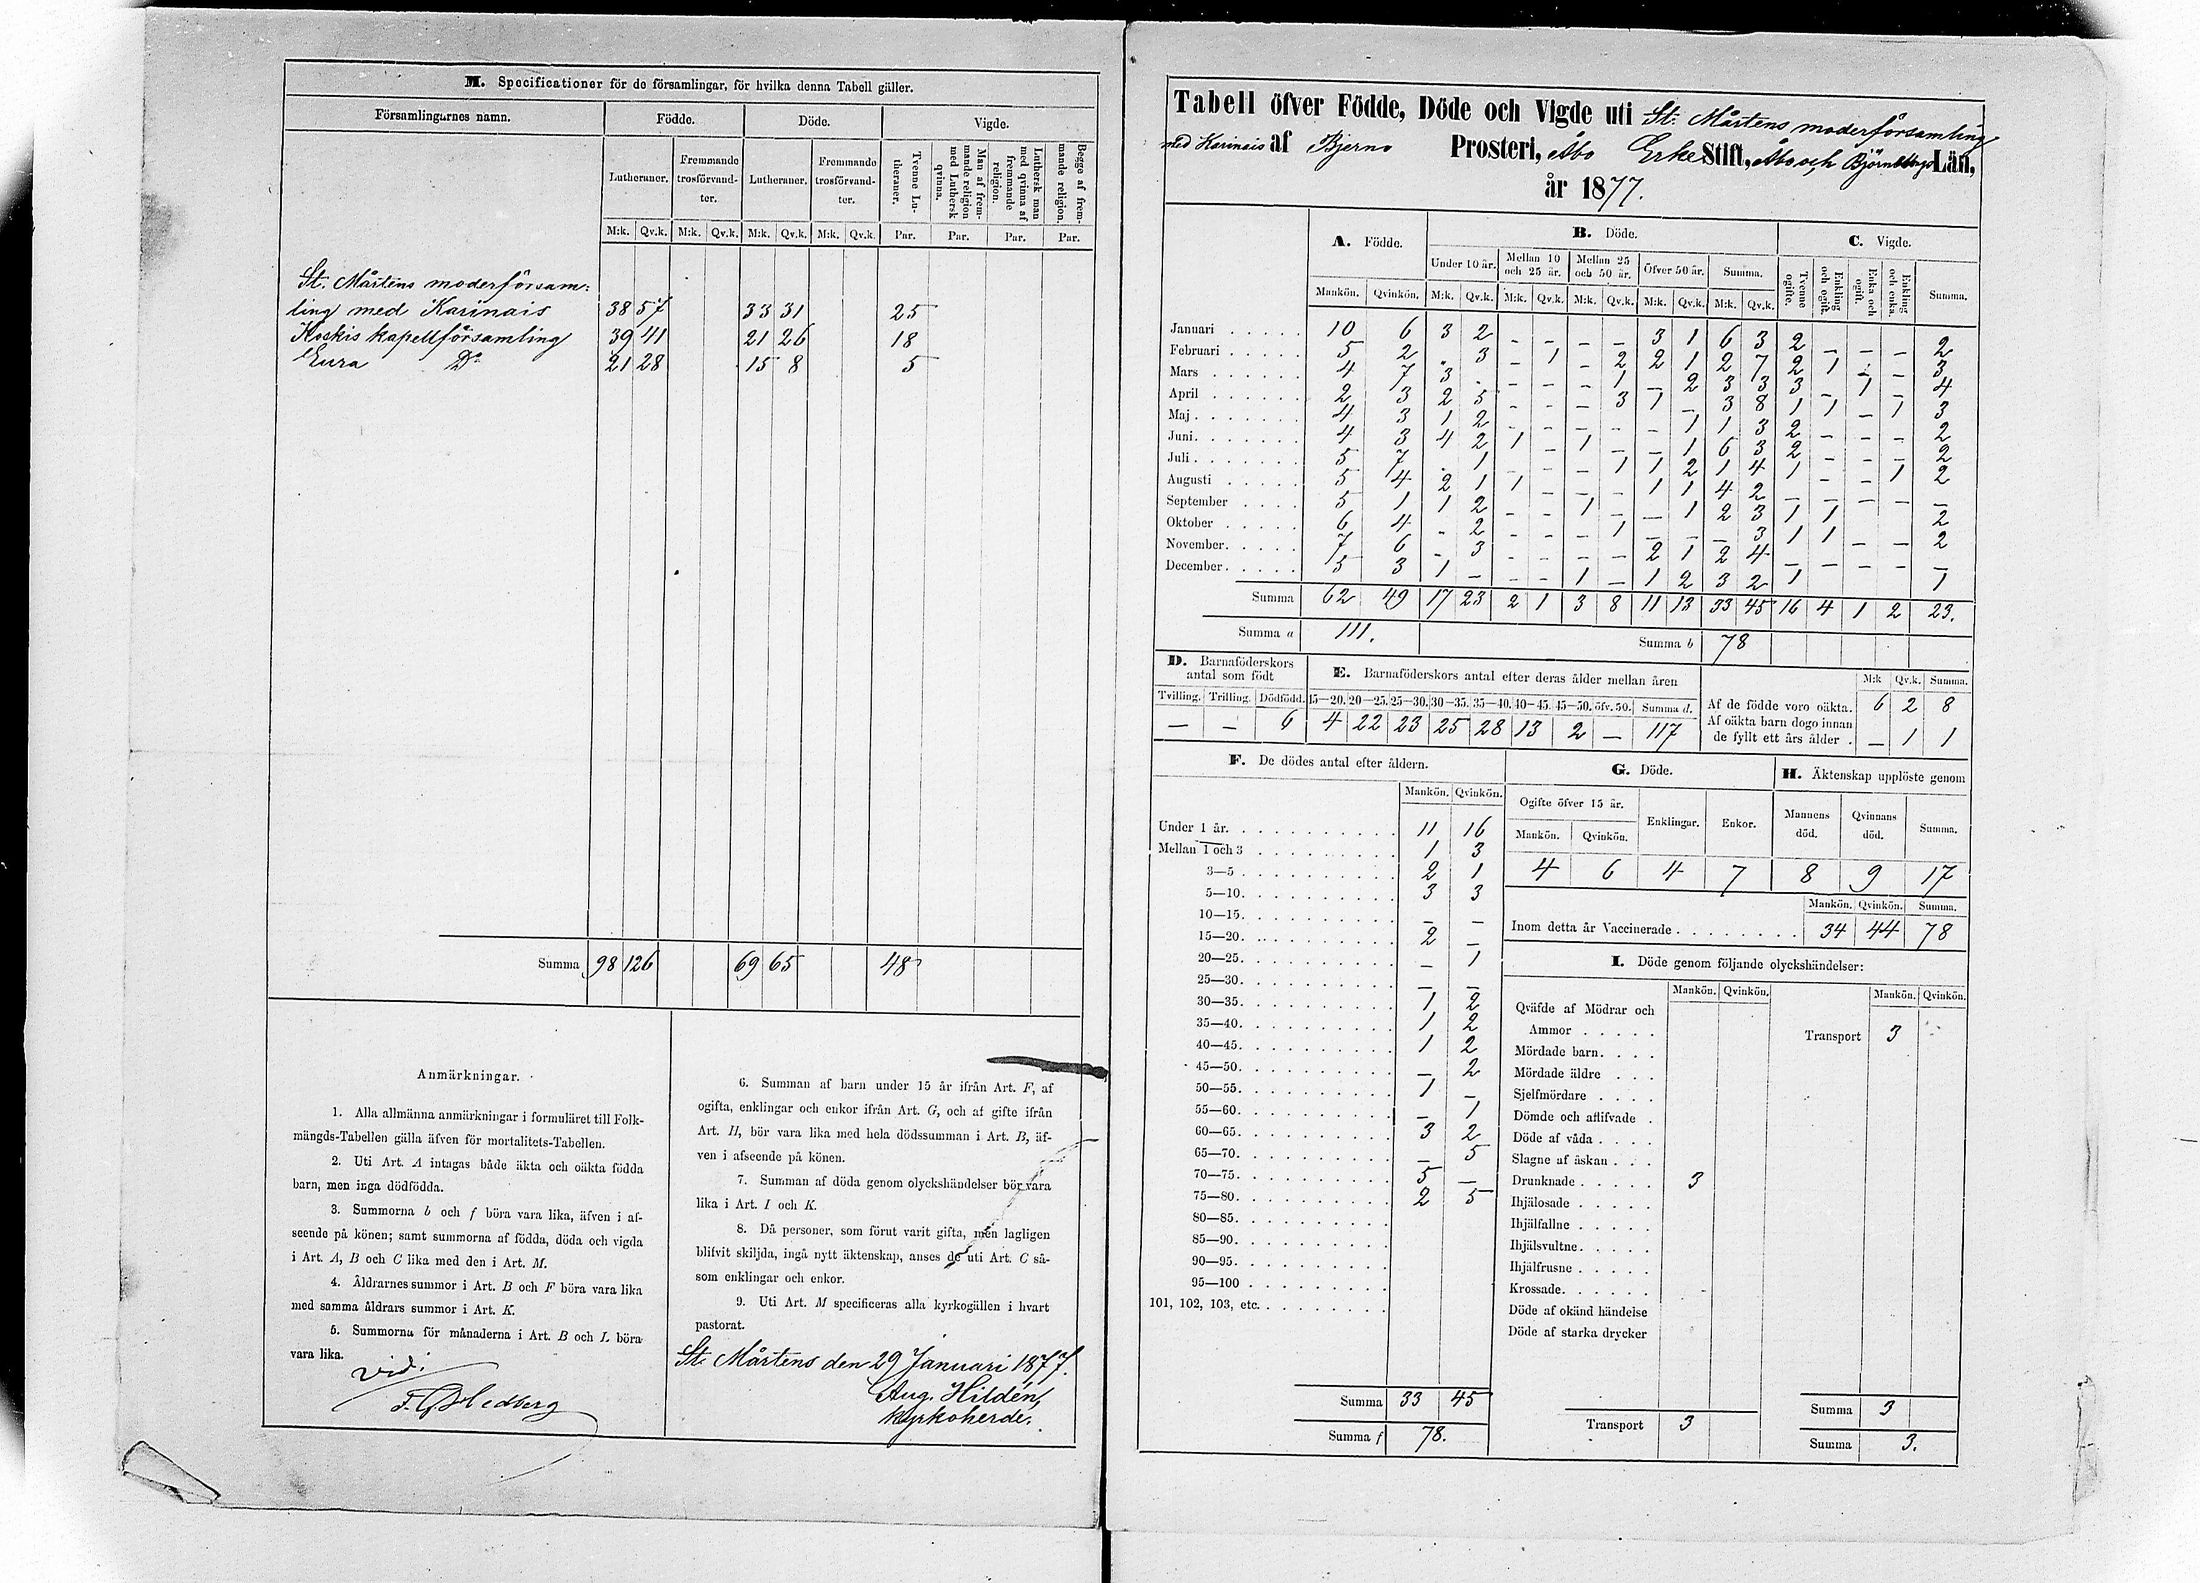 M. Specificationer för de församlingar, för hvilka denna Tabell gäller.
Församlingarnes namn. Födde. Döde. Vigde.
Lutheraner. Fremmande trosförvandter. Lutheraner. Fremmande trosförvandter. Tvenne Lutheraner. Man af fremmande religion med Luthersk qvinna. Luthersk man med qvinna af fremmande religion. Begge af fremmande religion.
M:k. Qv.k. M:k. Qv.k. M:k. Qv.k. M:k. Qv.k. Par. Par. Par. Par.
St. Mårtens moderförsam-
ling med Karinais 38 57 33 31 25
Koskis kapellförsamling 39 41 21 26 18
Eura Do 21 28 15 8 5
Summa 98 126 69 65 48
Anmärkningar.
1. Alla allmänna anmärkningar i formuläret till Folk-
mängds-Tabellen gälla äfven för mortalitets-Tabellen.
2. Uti Art. A intagas både äkta och oäkta födda
barn, men inga dödfödda.
3. Summorna b och f böra vara lika, äfven i af-
seende på könen; samt summorna af födda, döda och vigda
i Art. A, B och C lika med den i Art. M.
4. Åldrarnes summor i Art. B och F böra vara lika
med samma åldrars summor i Art. K.
5. Summorna för månaderna i Art. B och L böra
vara lika.
Vidi
F. G. Hedberg
6. Summan af barn under 15 år ifrån Art. F, af
ogifta, enklingar och enkor ifrån Art. G, och af gifte ifrån
Art. H, bör vara lika med hela dödssumman i Art. B, äf-
ven i afseende på könen.
7. Summan af döda genom olyckshändelser bör vara
lika i Art. I och K.
8. Då personer, som förut varit gifta, men lagligen
blifvit skiljda, ingå nytt äktenskap, anses de uti Art. C så-
som enklingar och enkor.
9. Uti Art. M specificeras alla kyrkogällen i hvart
pastorat.
St. Mårtens den 29 Januari 1877.
Aug. Hildén,
Kyrkoherde.
Tabell öfver Födde, Döde och Vigde uti St. Mårtens moderförsamling
med Karinais af Bjerno Prosteri, Åbo Erke Stift, Åbo och Björneborgs Län,
år 1877.
A. Födde. B. Döde. C. Vigde.
Under 10 år. Mellan 10 och 25 år. Mellan 25 och 50 år. Öfver 50 år. Summa. Tvenne ogifte. Enkling och ogift. Enka och ogift. Enkling och enka. Summa.
Mankön. Qvinkön. M:k. Qv.k. M:k. Qv.k. M:k. Qv.k. M:k. Qv.k. M:k. Qv.k.
Januari 10 6 3 2 - - - - 3 1 6 3 2 - - - 2
Februari 5 2 - 3 - 1 - 2 2 1 2 7 2 1 - - 3
Mars 4 7 3 - - - - 1 - 2 3 3 3 - 1 - 4
April 2 3 2 5 - - - 3 1 - 3 8 1 1 - 1 3
Maj 4 3 1 2 - - - - - 1 1 3 2 - - - 2
Juni 4 3 4 2 1 - 1 - - 1 6 3 2 - - - 2
Juli 5 7 - 1 - - - 1 1 2 1 4 1 - - 1 2
Augusti 5 4 2 1 1 - - - 1 1 4 2 - - - - -
September 5 1 1 2 - - 1 - - 1 2 3 1 1 - - 2
Oktober 6 4 - 2 - - - 1 - - - 3 1 1 - - 2
November 7 6 - 3 - - - - 2 1 2 4 - - - - -
December 5 3 1 - - - 1 - 1 2 3 2 1 1
Summa 62 49 17 23 2 1 3 8 11 13 33 45 16 4 1 2 23.
Summa a 111. Summa b 78
D. Barnaföderskors antal som födt
Tvilling. Trilling. Dödfödd.
— — 6
E. Barnaföderskors antal efter deras ålder mellan åren
15—20. 20—25. 25—30. 30—35. 35—40. 40—45. 45—50. öfv. 50. Summa d.
4 22 23 25 28 13 2 — 117
M:k Qv.k. Summa.
Af de födde voro oäkta. 6 2 8
Af oäkta barn dogo innan
de fyllt ett års ålder . — 1 1
F. De dödes antal efter åldern.
Mankön. Qvinkön.
Under 1 år. 11 16
Mellan 1 och 3 1 3
3—5 2 1
5—10. 3 3
10—15. — —
15—20. 2 —
20—25. — 1
25—30. — —
30—35. 1 2
35—40. 1 2
40—45. 1 2
45—50. — 2
50—55. 1 —
55—60. — 1
60—65. 3 2
65—70. — 5
70—75. 5 —
75—80. 2 5
80—85.
85—90.
90—95.
95—100
101, 102, 103, etc.
Summa 33 45
Summa f 78.
G. Döde.
Ogifte öfver 15 år. Enklingar. Enkor.
Mankön. Qvinkön.
4 6 4 7
H. Äktenskap upplöste genom
Mannens död. Qvinnans död. Summa.
8 9 17
Mankön. Qvinkön. Summa.
Inom detta år Vaccinerade 34 44 78
I. Döde genom följande olyckshändelser:
Mankön. Qvinkön. Mankön. Qvinkön.
Qväfde af Mödrar och
Ammor Transport 3
Mördade barn.
Mördade äldre
Sjelfmördare
Dömde och aflifvade
Döde af våda
Slagne af åskan
Drunknade 3
Ihjälosade
Ihjälfallne
Ihjälsvultne.
Ihjälfrusne
Krossade.
Döde af okänd händelse
Döde af starka drycker
Transport 3 Summa 3
Summa 3.